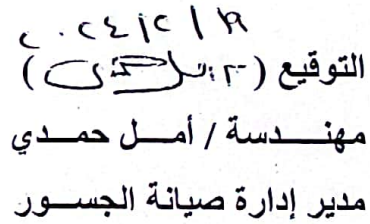 ٢٠٢٤/٢/١٩
التوقيع (             )
مهنــدسة / أمــل حمــدي
مدير إدارة صيانة الجســور